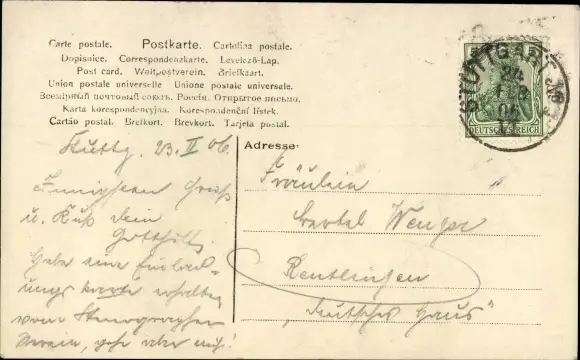 Carte postale. Postkarte. Cartolina postale.
Dopisnice. Correspondenzkarte. Levelező-Lap.
Post card. Weltpostverein. Briefkaart.
Union postale universelle. Unione postale universale.
Всемірный почтовый союзъ. Россія. Открытое письмо.
Karta korespondencyjna. Korespondenční lístek.
Cartão postal. Brefkort. Brevkort. Tarjeta postal.
STUTTGART
DEUTSCHES REICH
Stuttg. 23. II 06.
Innigsten Gruß
u. Kuß dein
Gotthilf.
Habe eine Einlad-
ungskarte erhalten
vom Stenographen
Verein, gehe aber nicht!
Adresse:
Fräulein
Wenger
Reutlingen
"deutsches Haus"